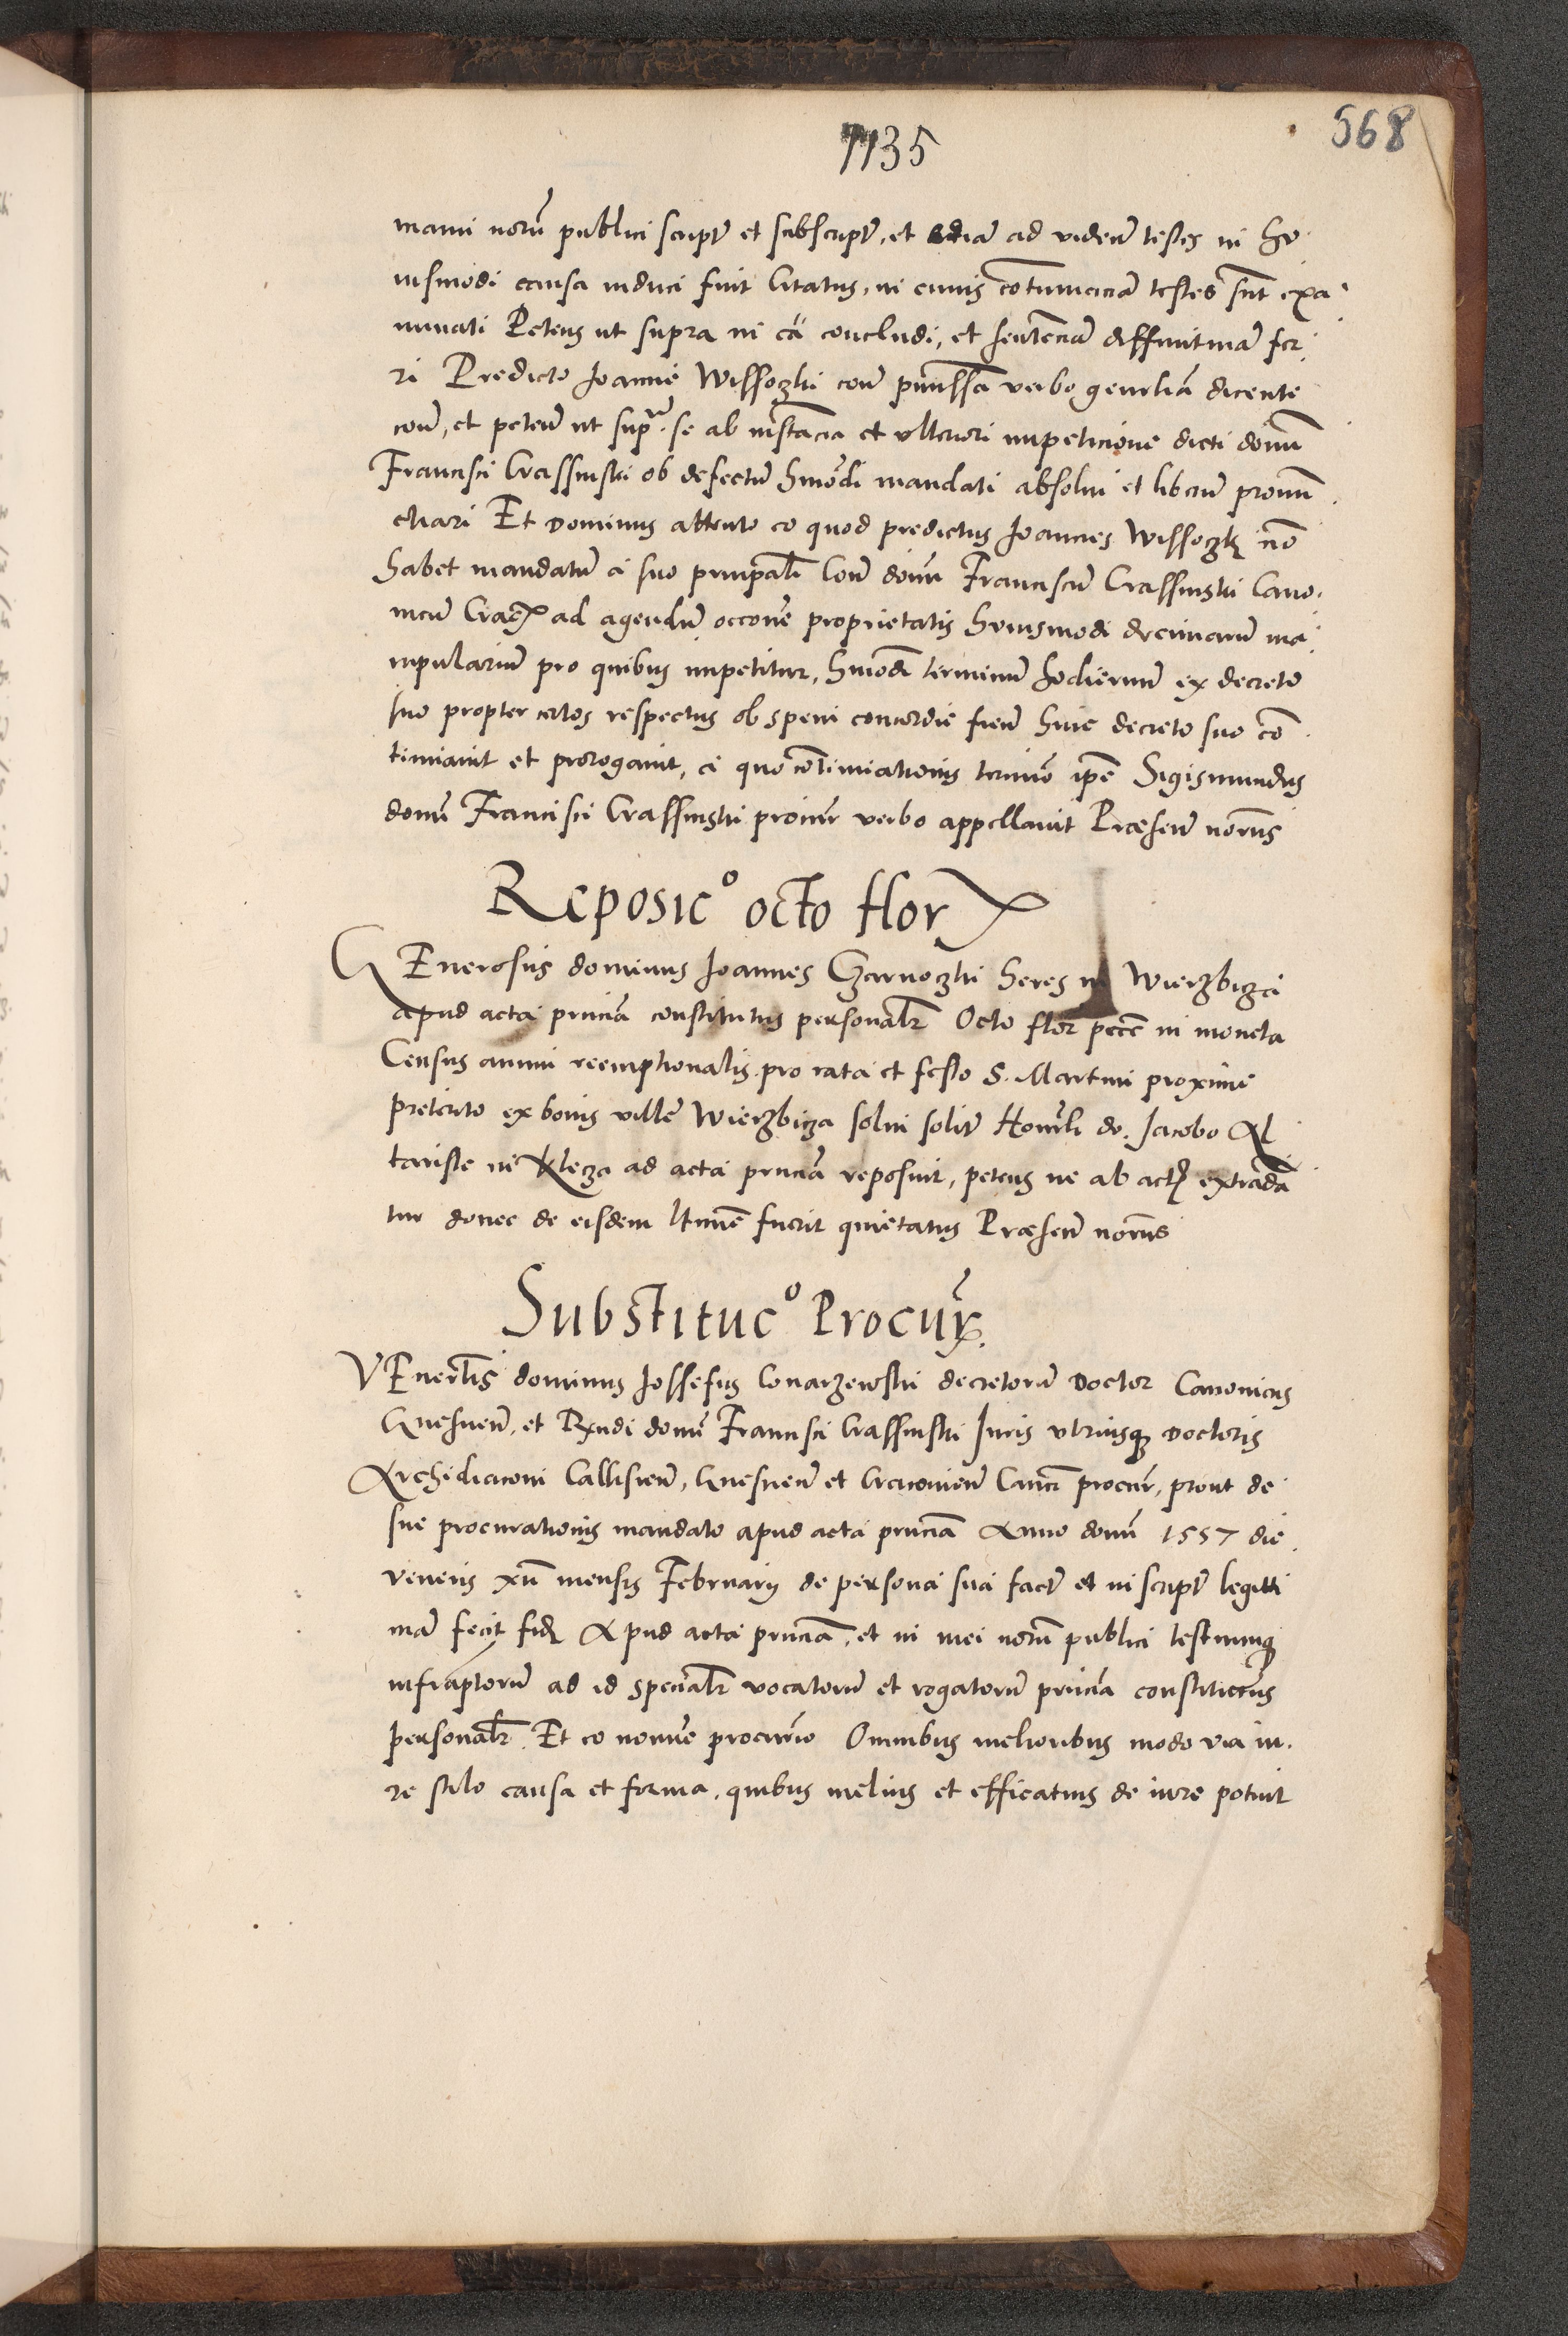 568
1135
manu norū publici script et subscript, et etiā ad videñ testes in hu
iusmodi causa induci fuit Citatus, in cuius cōtumaciā testes sūt exa
minati Petens ut supra in cā concludi, et sentenciā diffinitiuā fer
ri Predicto Joanne Wissoczki coñ pmissā verbo generliā dicente
coñ, et peteñ ut supra se ab instācia et vlteriori impeticione dicti domī
Francisci Crassinski ob defectū hmōdi mandati absolui et liberū pronū
ctiari Et Dominus attento eo quod predictus Joannes Wissoczki nō
habet mandatū a suo principali Coñ domī Franciscū Crassinski Cano
nicū Cracoꝝ ad agendū occōne proprietatis huiusmodi decimarū ma
nipulariū pro quibus impetitur, hmōdi terminū hodiernū ex decreto
suo propter certos respectus ob spem concordie fieñ huic decreto suo cō
tinuauit et prorogauit, a quo cōtinuationis termīo ipē Sigismundus
domī Francisci Crassinski procuir verbo appellauit Præseñ norīus
Reposic° octo flor
GEnerosus dominus Joannes Czarnoczki heres in Wierzbicza
apud acta pnciā constitutus personalr Octo flor pecē in moneta
Census annui reemptionalis pro rata et festo S. Martini proxime
preterito ex bonis ville Wierzbicza solui solit Honorli do. Jacobo Al
tariste in Klecza ad acta pnciā reposuit, petens ne ab actis extradā
tur donec de eisdem ltimē fuerit quietatus Præseñ norīus
Substituc° Procur
VEnerlis dominus Jossefus Conarzewski decretorū Doctor Canonicus
Gnesneñ, et Rṽndi domī Francisci Crassinski Juris vtriusqȝ Doctoris
Archidiaconi Callisieñ, Gnesneñ et Cracouieñ Canci procur, prout de
sue procurationis mandato apud acta pnciā Anno domī 1557 die
veneris xii mensis Februarij de persona sua fact et in script legitti
mā fecit fidē Apud acta pnciā, et in mei norū publici testiumqȝ
infraptorū ad id specialr vocatorū et rogatorū pnciā constitutus
personalr Et eo nomīe procurio Omnibus melioribus modo via iu
re stilo causa et forma, quibus melius et efficatius de iure potuit